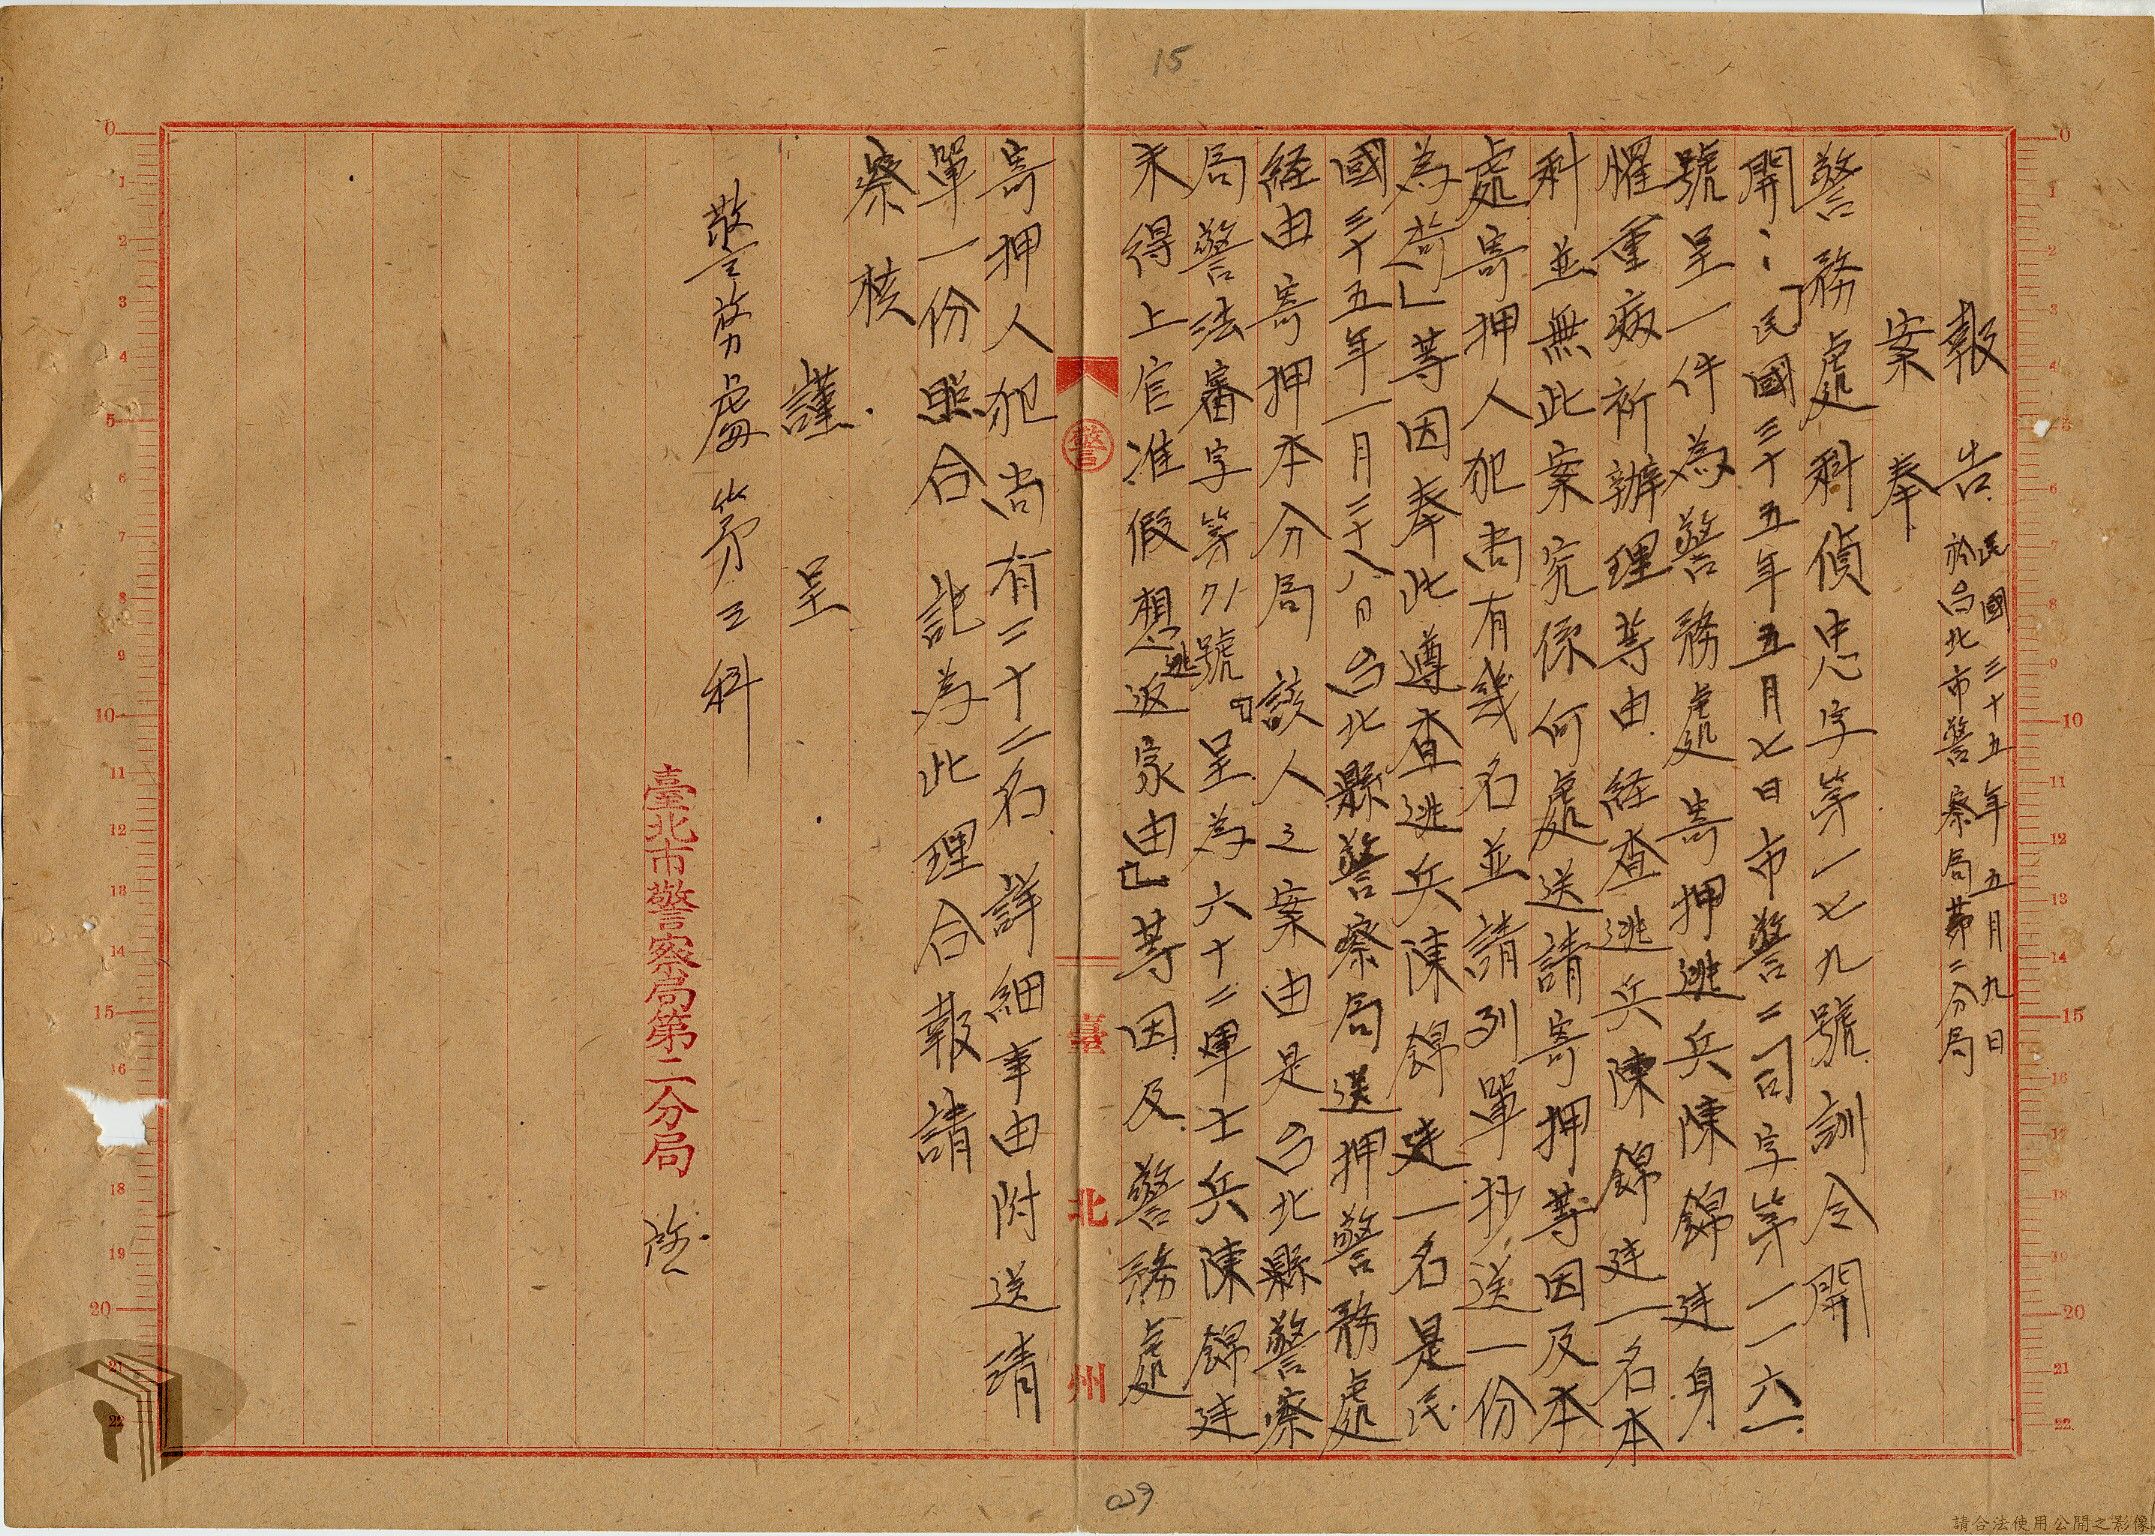 15
報告 民國三十五年五月九日
於台北市警察局第二分局
案奉
警務處科偵忠字第一七九號訓令開
開：「民國三十五年五月七日市警二司字第一一六一
號呈一件為警務處寄押逃兵陳錦建身
懼重病祈辦理等由経查逃兵陳錦建一名本
科並無此案究係何處送請寄押等因及本
處寄押人犯尚有幾名並請列單抄送一份
為荷」等因奉此遵查逃兵陳錦建一名是民
國三十五年一月二十八日台北縣警察局送押警務處
経由寄押本分局該人之案由是台北縣警察
局警法審字第71號「呈為六十二軍士兵陳錦建
未得上官准假想逃返家由」等因及警務處
寄押人犯尚有二十二名詳細事由附送請
單一份照合記為此理合報請
察核
謹呈
警務處第三科
臺北市警察局第二分局 啟
警
臺北州
029
請合法使用公開之影像